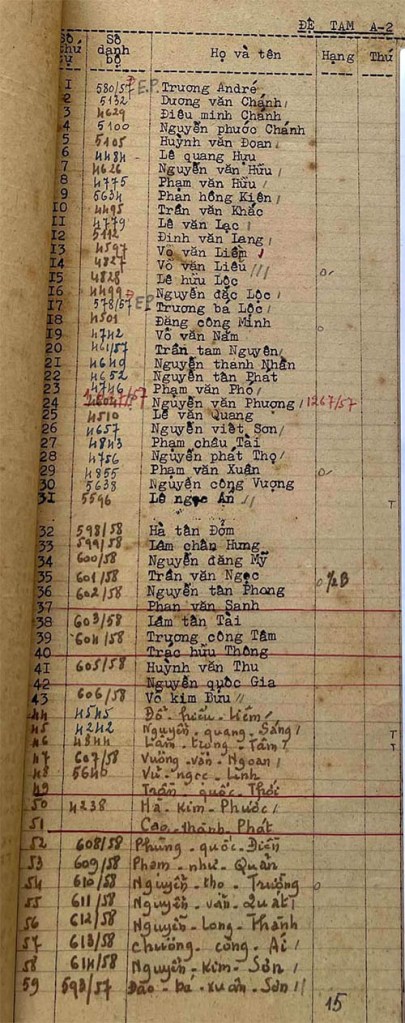 ĐỆ TAM A-2
Số thứ tự Số danh bộ Họ và tên Hạng Thứ
I 580/57 E.P. Trương André
2 5132 Dương văn Chánh
3 4629 Điêu minh Chánh
4 5100 Nguyễn phước Chánh
5 5105 Huỳnh văn Đoan
6 4484 Lê quang Hưu
7 4626 Nguyễn văn Hữu
8 4775 Phạm văn Hữu
9 5634 Phan hồng Kiên
I0 4495 Trần văn Khắc
II 4779 Lê văn Lạc
I2 5112 Đinh văn Lang
I3 4597 Võ văn Liêm
I4 4827 Võ văn Liêu
I5 4828 Lê hữu Lộc
I6 4499 Nguyễn đắc Lộc
I7 578/57 E.P. Trương bá Lộc
I8 4501 Đặng công Minh
I9 4742 Võ văn Năm
20 461/57 Trần tam Nguyên
2I 4649 Nguyễn thanh Nhẫn
22 4652 Nguyễn tấn Phát
23 4746 Phạm văn Phó
24 Nguyễn văn Phượng 1267/57
25 4510 Lê văn Quang
26 4657 Nguyễn viết Sơn
27 4843 Phạm châu Tài
28 4756 Nguyễn phát Thọ
29 4855 Phạm văn Xuân
30 5638 Nguyễn công Vượng
3I 5596 Lê ngọc Ấn T
32 598/58 Hà tấn Đởm
33 599/58 Lâm chấn Hưng
34 600/58 Nguyễn đăng Mỹ
35 601/58 Trần văn Ngọc
36 602/58 Nguyễn tấn Phong
37 Phan văn Sanh
38 603/58 Lâm tấn Tài
39 604/58 Trương công Tâm
40 Trác hữu Thông
4I 605/58 Huỳnh văn Thu
42 Nguyễn quốc Gia
43 606/58 Võ kim Bửu
44 4545 Đỗ - hiếu - Liêm
45 4242 Nguyễn - quang - Sáng T
46 4844 Lâm - trọng - Tâm T
47 607/58 Vương - văn - Ngoan
48 5640 Vũ - ngọc - Linh
49 Trần - quốc - Thới
50 4238 Hà - Kim - Phước
51 Cao - thành - Phát
52 608/58 Phùng - quốc - Điền
53 609/58 Phạm - như - Quán
54 610/58 Nguyễn - thọ - Trường
55 611/58 Nguyễn - văn - Quát
56 612/58 Nguyễn - Long - Thành
57 613/58 Chương - công - Ái
58 614/58 Nguyễn - Kim - Sơn
59 593/57 Đào - bá - xuân - Sơn
15